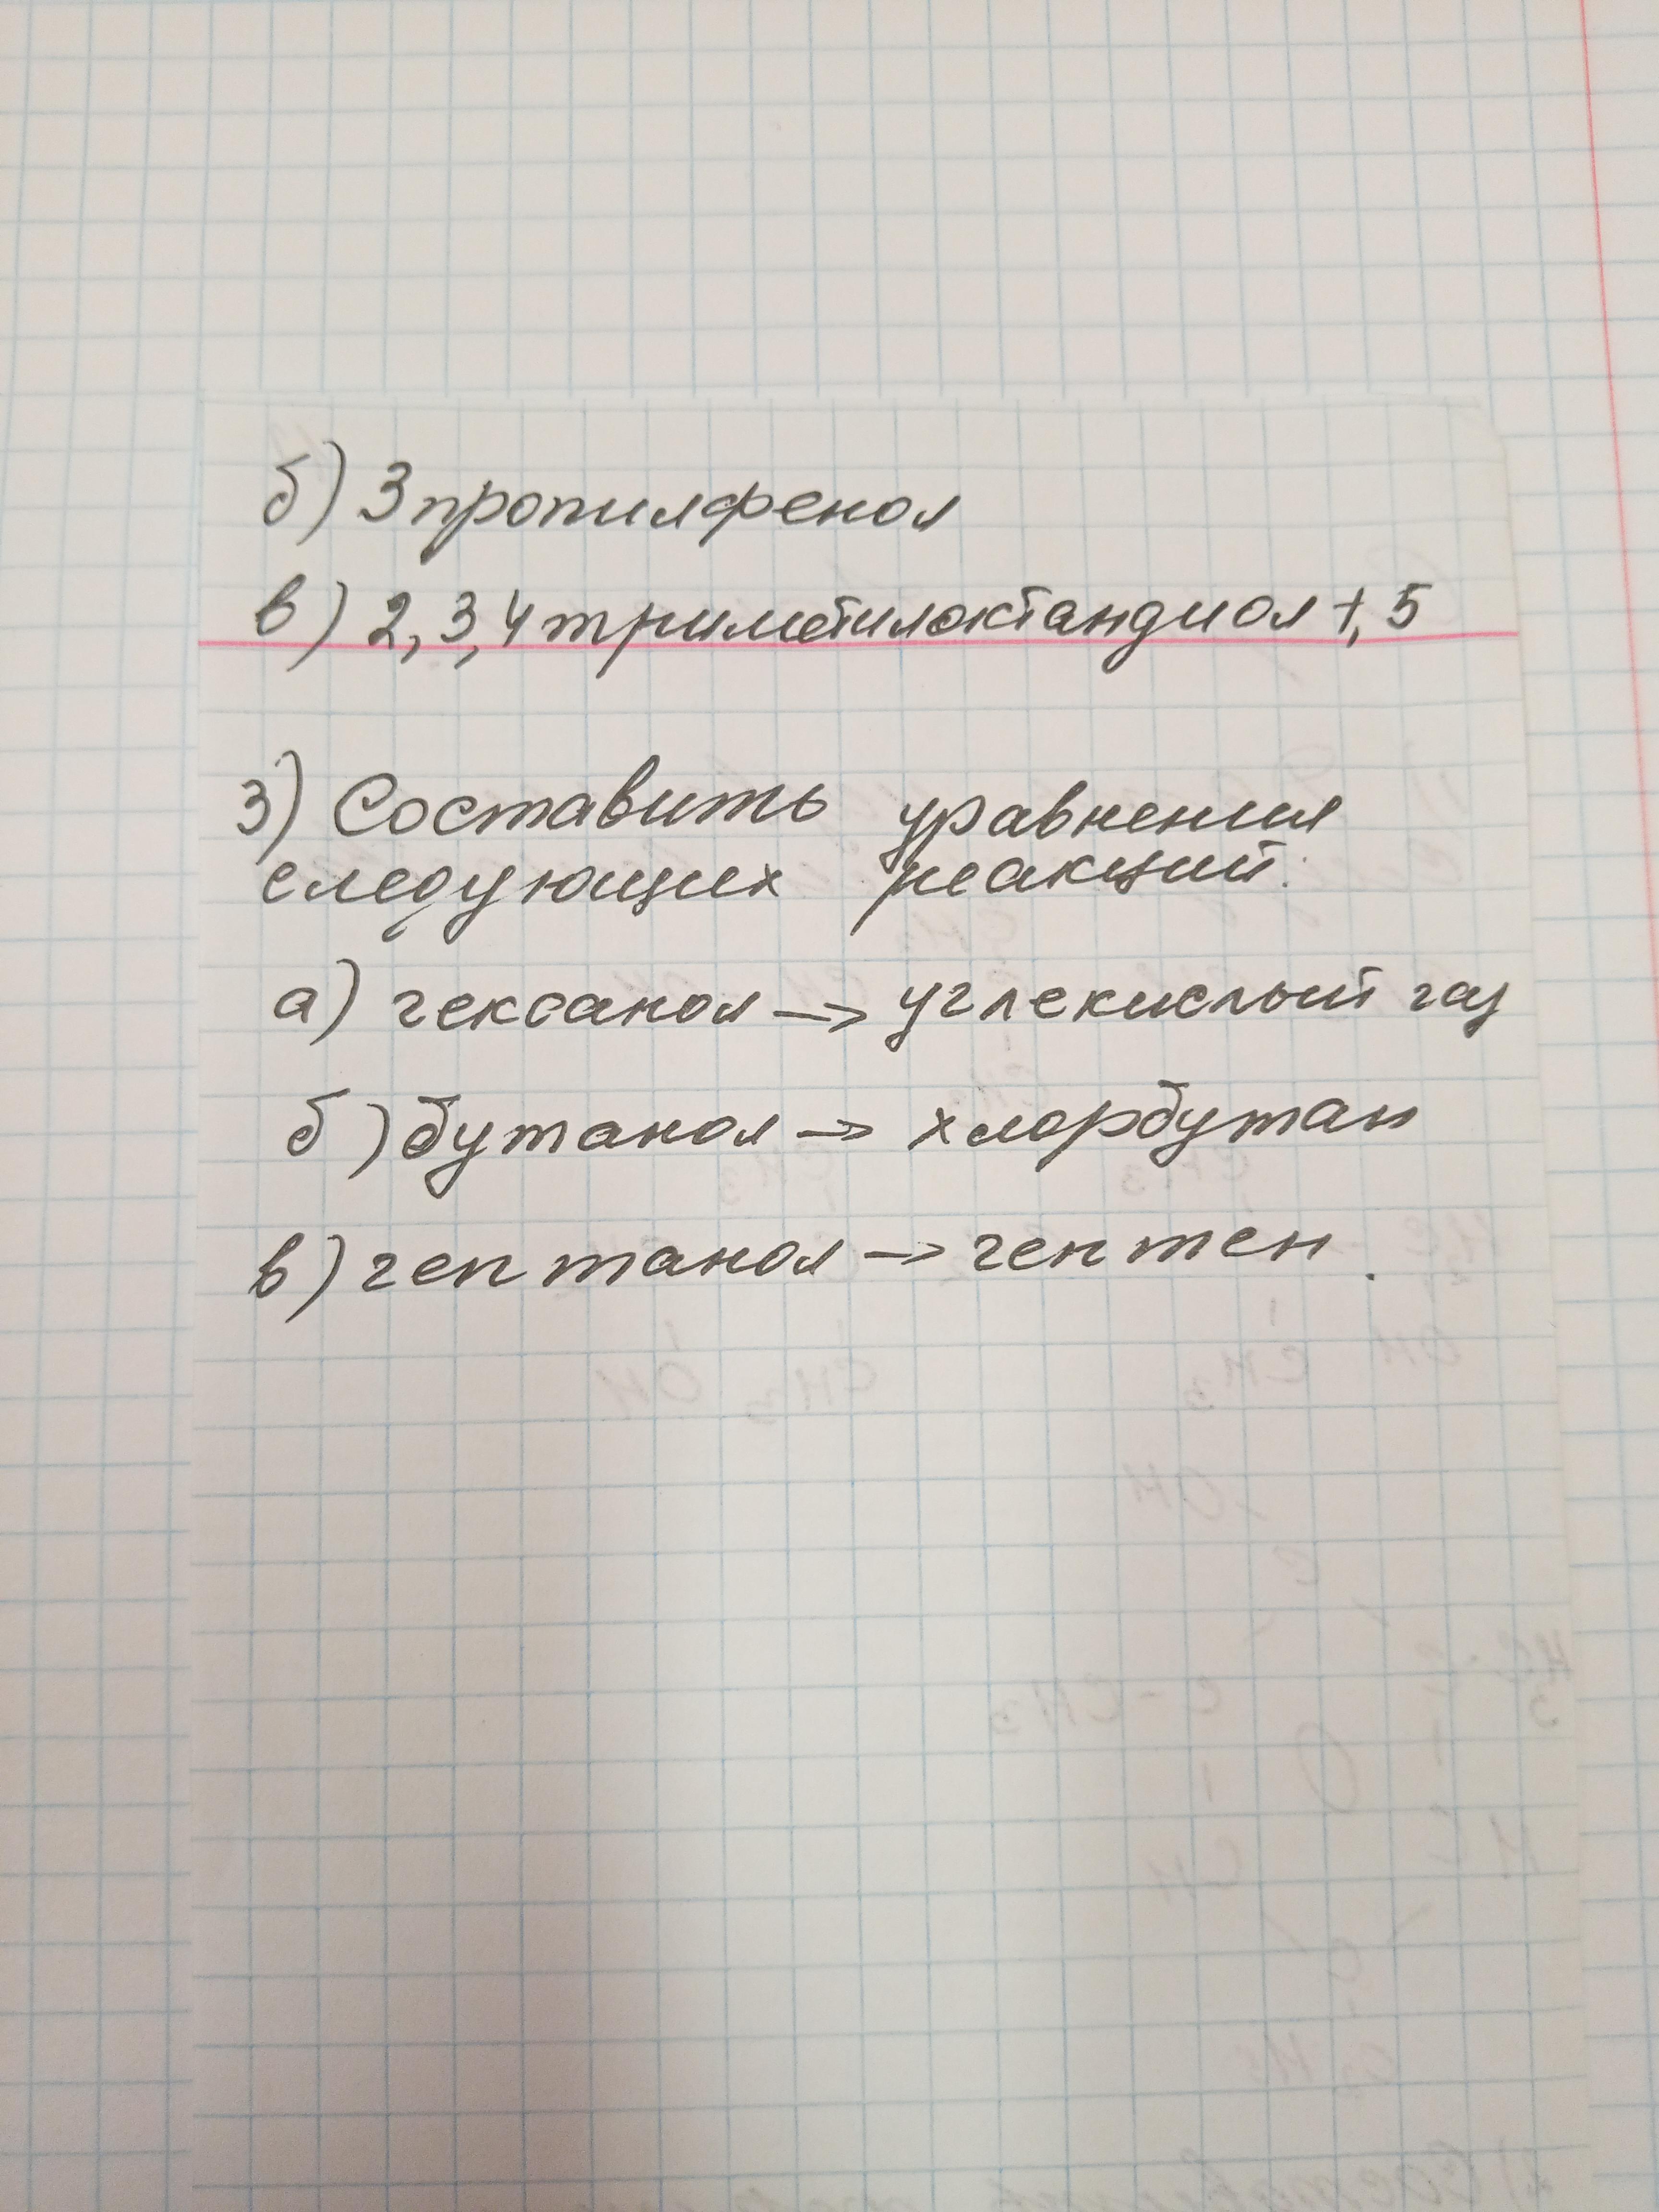 б) 3 пропилфенол
в) 2, 3, 4 триметилоктандиол 1, 5
3) Составить уравнения
следующих реакций:
а) гексанол → углекислый газ
б) бутанол → хлорбутан
в) гептанол → гептен.